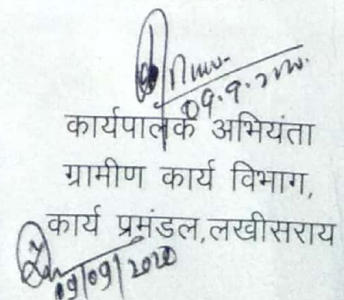 09.9.2020
कार्यपालक अभियंता
ग्रामीण कार्य विभाग,
कार्य प्रमंडल,लखीसराय
09/09/2020